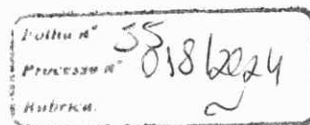 Folha nº 55
Processo nº 018/2024
Rubrica.